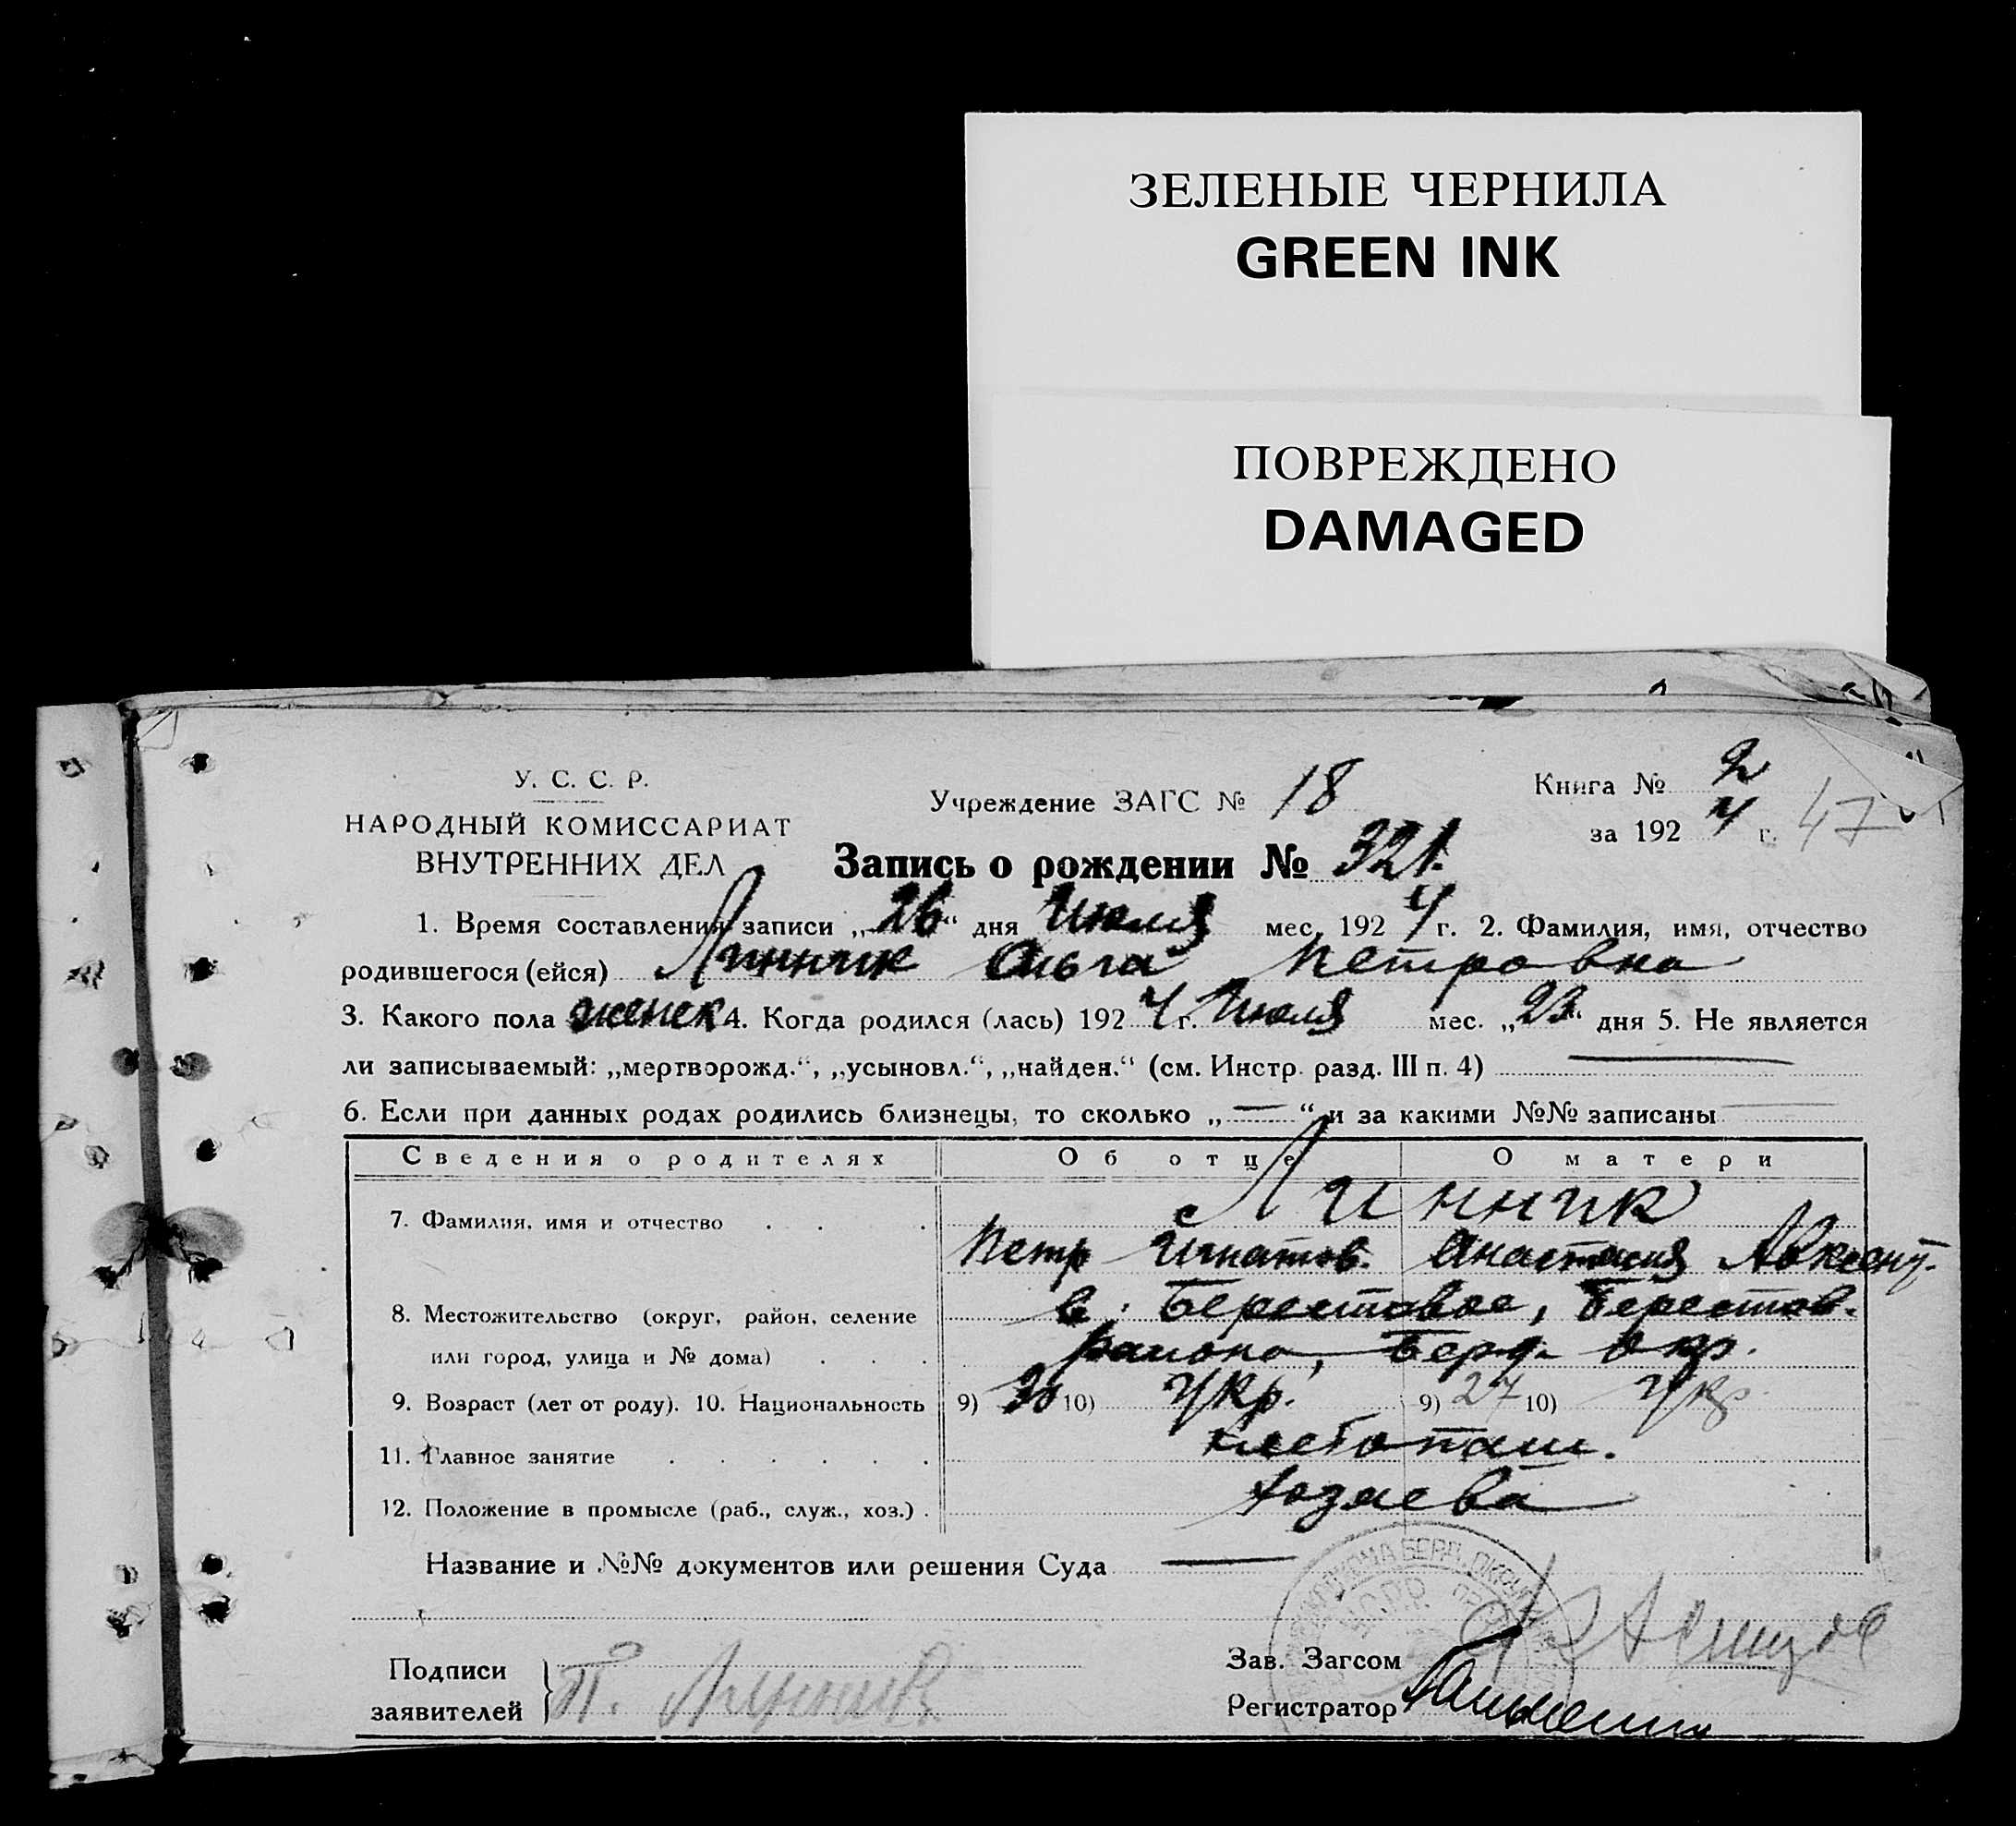 ЗЕЛЕНЫЕ ЧЕРНИЛА
GREEN INK
ПОВРЕЖДЕНО
DAMAGED
У. С. С. Р.
НАРОДНЫЙ КОМИССАРИАТ
ВНУТРЕННИХ ДЕЛ
Учреждение ЗАГС № 18
Книга № 2
за 1924 г. 47
Запись о рождении № 321.
1. Время составления записи „26“ дня Июля мес. 1924 г. 2. Фамилия, имя, отчество
родившегося (ейся) Линник Ольга Петровна
3. Какого пола женск 4. Когда родился (лась) 1924 г. Июля мес. „23“ дня 5. Не является
ли записываемый: „мертворожд.“, „усыновл.“, „найден.“ (см. Инстр. разд. III п. 4) —
6. Если при данных родах родились близнецы, то сколько „—“ и за какими №№ записаны —
Сведения о родителях Об отце О матери
Линник
7. Фамилия, имя и отчество . . .
Петр Игнатов. Анастасия Авксент.
8. Местожительство (округ, район, селение с. Берестовое, Берестов.
или город, улица и № дома) . . . района, Берд. окр.
9. Возраст (лет от роду). 10. Национальность 9) 30 10) Укр. 9) 27 10) Укр.
11. Главное занятие . . . . . . хлебопаш.
12. Положение в промысле (раб., служ., хоз.) . хозяева
Название и №№ документов или решения Суда —
БЕРД. ОКР
У.С.Р.Р.
Подписи
заявителей
П. Линник
Зав. Загсом
Регистратор